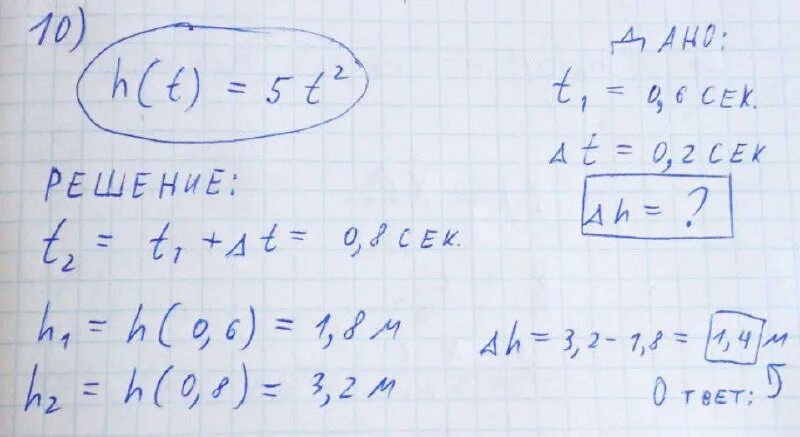 10)
h(t) = 5t²
ДАНО:
t₁ = 0,6 СЕК.
Δt = 0,2 СЕК
Δh = ?
РЕШЕНИЕ:
t₂ = t₁ + Δt = 0,8 СЕК.
h₁ = h(0,6) = 1,8 м
h₂ = h(0,8) = 3,2 м
Δh = 3,2 - 1,8 = 1,4 м
Ответ: 5